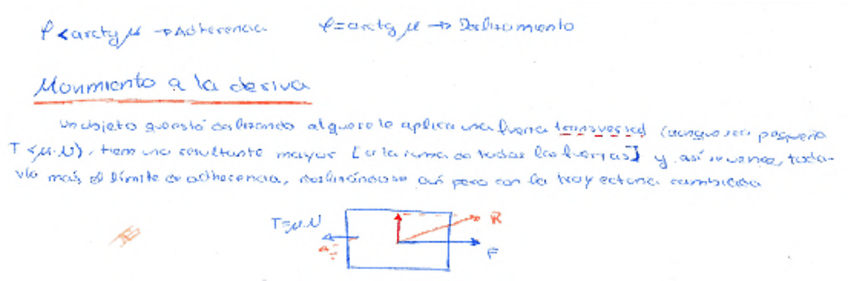 φ < arctg μ → Adherencia φ = arctg μ → Deslizamiento
Movimiento a la deriva
Un objeto que está deslizando al que se le aplica una fuerza transversal (aunque sea pequeña
T < μ·N), tiene una resultante mayor [a la suma de todas las fuerzas] y, así se vence, toda-
vía más, el límite de adherencia, deslizándose así pero con la trayectoria cambiada
T=μ·N
R
F